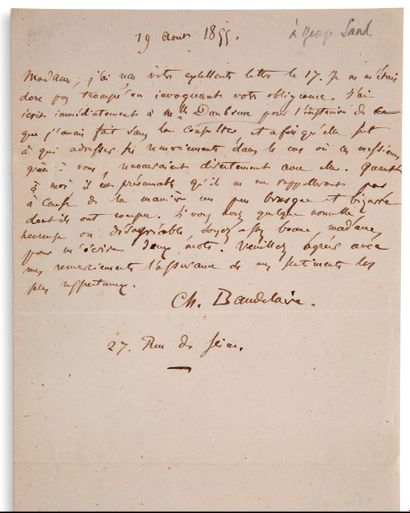 19 Août 1855.
à George Sand
Madame, j'ai reçu votre excellente lettre le 17. Je ne m'étais
donc pas trompé en invoquant votre obligeance. J'ai
écrit immédiatement à Mlle Daubrun pour l'instruire de ce
que j'avais fait sans la consulter, et afin qu'elle sût
à qui adresser ses remerciements dans le cas où ces messieurs,
grâce à vous, renoueraient directement avec elle. Quant
à moi il est présumable qu'ils ne me rappelleront pas
à cause de la manière un peu brusque et bizarre
dont ils ont rompu. Si vous avez quelque nouvelle
heureuse ou désagréable, soyez assez bonne, madame,
pour m'écrire deux mots. Veuillez agréer avec
mes remerciements l'assurance de mes sentiments les
plus respectueux.
Ch. Baudelaire.
27. Rue de Seine.